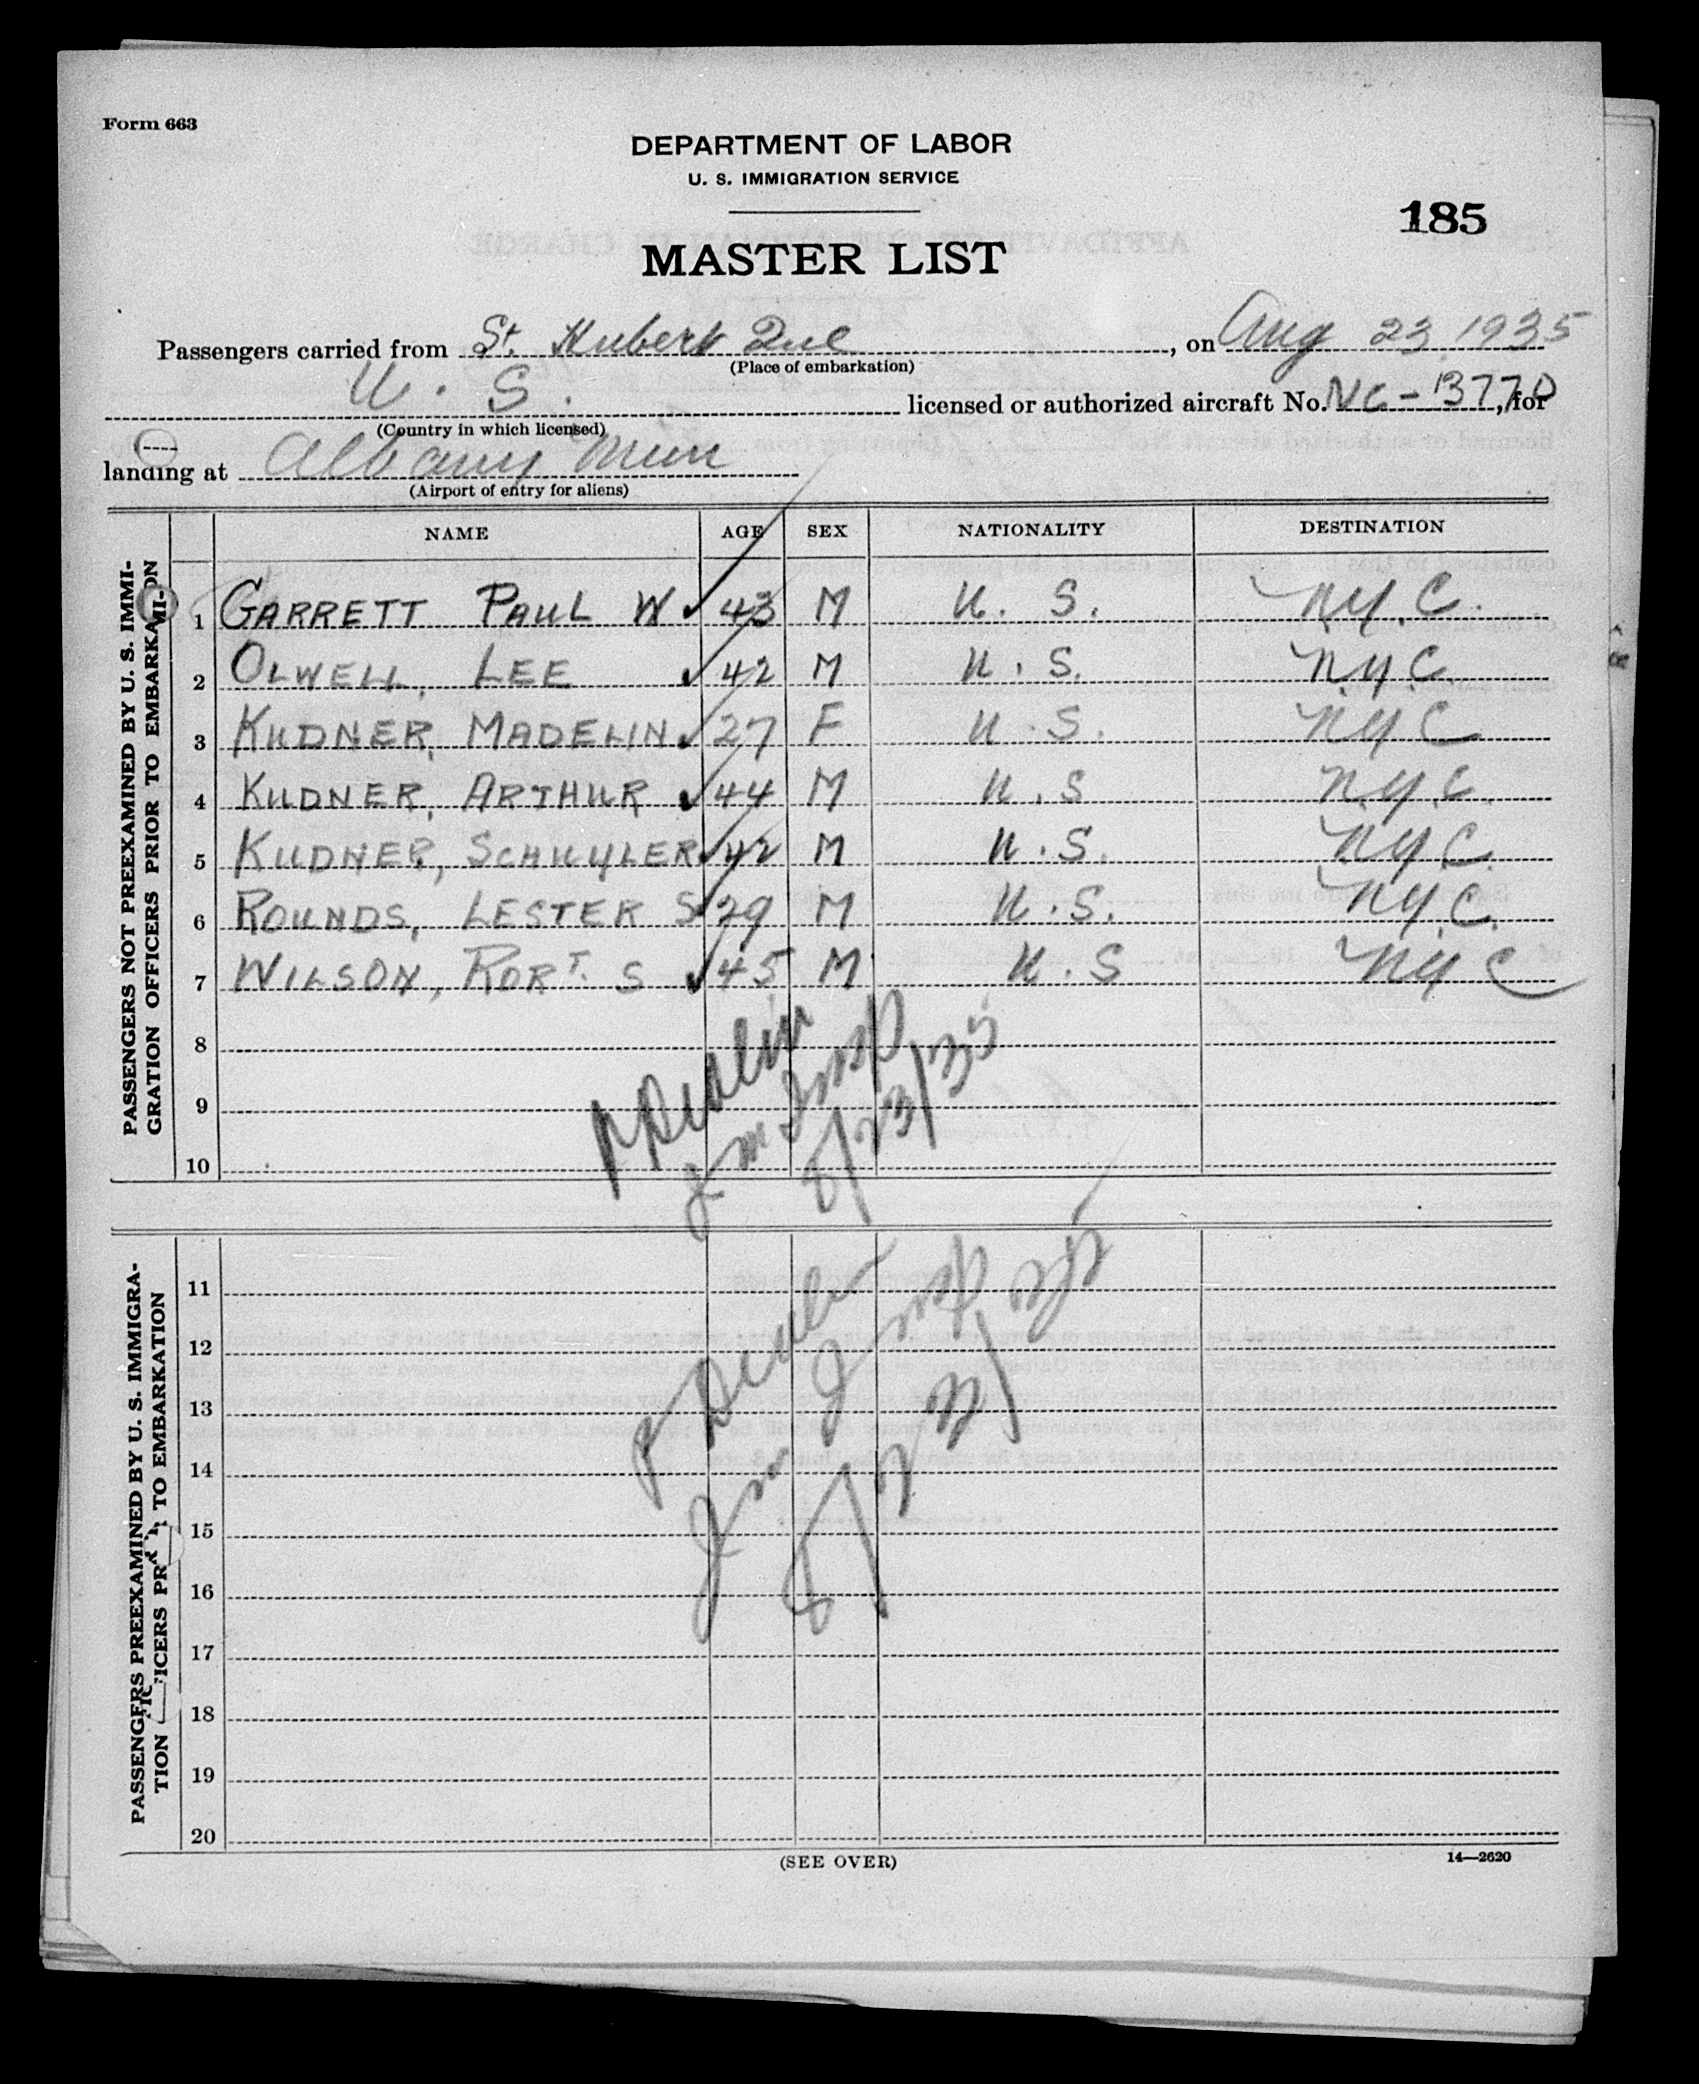 Form 663
DEPARTMENT OF LABOR
U. S. IMMIGRATION SERVICE
185
MASTER LIST
Passengers carried from St. Hubert Que, on Aug 23, 1935
(Place of embarkation)
U. S. licensed or authorized aircraft No. NC-13770, for
(Country in which licensed)
landing at Albany Mun
(Airport of entry for aliens)
NAME AGE SEX NATIONALITY DESTINATION
PASSENGERS NOT PREEXAMINED BY U. S. IMMI-
GRATION OFFICERS PRIOR TO EMBARKATION
1 GARRETT PAUL W 43 M U. S. N.Y.C.
2 OLWELL, LEE 42 M U. S. N.Y.C.
3 KUDNER, MADELIN 27 F U. S. N.Y.C
4 KUDNER, ARTHUR 44 M U. S N.Y.C.
5 KUDNER, SCHUYLER 42 M U. S. N.Y.C.
6 ROUNDS, LESTER S 29 M U. S. N.Y.C.
7 WILSON, ROBT. S 45 M U. S N.Y.C
8
9
10
8/23/35
PASSENGERS PREEXAMINED BY U. S. IMMIGRA-
TION OFFICERS PRIOR TO EMBARKATION
11
12
13
14
15
16
17
18
19
20
(SEE OVER)
14—2620